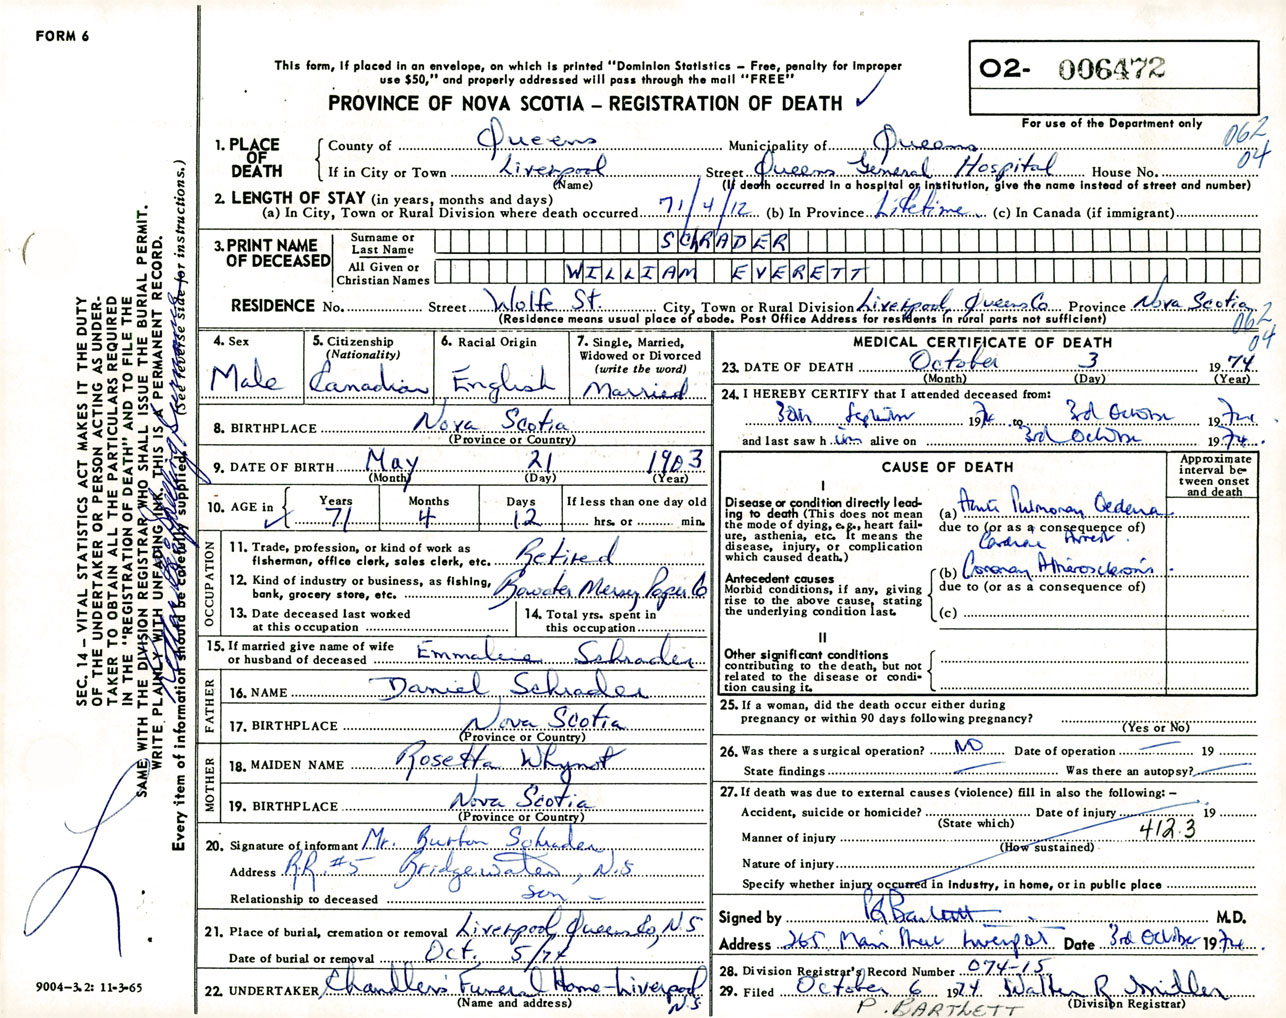 FORM 6
This form, if placed in an envelope, on which is printed "Dominion Statistics – Free, penalty for improper
use $50," and properly addressed will pass through the mail "FREE"
PROVINCE OF NOVA SCOTIA – REGISTRATION OF DEATH ✓
O2- 006472
For use of the Department only
062
04
1. PLACE OF DEATH
County of Queens Municipality of Queens
If in City or Town Liverpool Street Queens General Hospital House No.
(Name) (If death occurred in a hospital or institution, give the name instead of street and number)
2. LENGTH OF STAY (in years, months and days)
(a) In City, Town or Rural Division where death occurred 71/4/12 (b) In Province Lifetime (c) In Canada (if immigrant)
3. PRINT NAME OF DECEASED
Surname or Last Name SCHRADER
All Given or Christian Names WILLIAM EVERETT
RESIDENCE No. Street Wolfe St. City, Town or Rural Division Liverpool, Queens Co Province Nova Scotia
(Residence means usual place of abode. Post Office Address for residents in rural parts not sufficient)
062
04
4. Sex Male
5. Citizenship (Nationality) Canadian
6. Racial Origin English
7. Single, Married, Widowed or Divorced (write the word) Married
8. BIRTHPLACE Nova Scotia
(Province or Country)
9. DATE OF BIRTH May 21 1903
(Month) (Day) (Year)
10. AGE in Years 71 Months 4 Days 12 If less than one day old hrs. or min.
OCCUPATION
11. Trade, profession, or kind of work as fisherman, office clerk, sales clerk, etc. Retired
12. Kind of industry or business, as fishing, bank, grocery store, etc. Bowater Mersey Paper Co
13. Date deceased last worked at this occupation
14. Total yrs. spent in this occupation
15. If married give name of wife or husband of deceased Emmaline Schrader
FATHER
16. NAME Daniel Schrader
17. BIRTHPLACE Nova Scotia
(Province or Country)
MOTHER
18. MAIDEN NAME Rosetta Whynot
19. BIRTHPLACE Nova Scotia
(Province or Country)
20. Signature of informant Mr. Burton Schrader
Address R.R. #5 Bridgewater, N.S
Relationship to deceased son
21. Place of burial, cremation or removal Liverpool, Queens Co, N S
Date of burial or removal Oct. 5/74
22. UNDERTAKER Chandlers Funeral Home – Liverpool
(Name and address) N.S
MEDICAL CERTIFICATE OF DEATH
23. DATE OF DEATH October 3 1974
(Month) (Day) (Year)
24. I HEREBY CERTIFY that I attended deceased from:
30th 1974 to 3rd October 1974
and last saw him alive on 3rd October 1974
CAUSE OF DEATH
Approximate interval between onset and death
I
Disease or condition directly leading to death (This does not mean the mode of dying, e.g., heart failure, asthenia, etc. It means the disease, injury, or complication which caused death.)
(a) Acute Pulmonary Oedema
due to (or as a consequence of)
Cardiac Arrest
Antecedent causes
Morbid conditions, if any, giving rise to the above cause, stating the underlying condition last.
(b) Coronary Atherosclerosis
due to (or as a consequence of)
(c)
II
Other significant conditions
contributing to the death, but not related to the disease or condition causing it.
25. If a woman, did the death occur either during
pregnancy or within 90 days following pregnancy?
(Yes or No)
26. Was there a surgical operation? NO Date of operation — 19
State findings — Was there an autopsy? —
27. If death was due to external causes (violence) fill in also the following: –
Accident, suicide or homicide? Date of injury 19
(State which)
Manner of injury 412.3
(How sustained)
Nature of injury
Specify whether injury occurred in industry, in home, or in public place
Signed by P Bartlett M.D.
Address 265 Main Street Liverpool Date 3rd October 1974
28. Division Registrar's Record Number 074-15
29. Filed October 6 1974 Walter R
(Division Registrar)
P. BARTLETT
SEC. 14 –VITAL STATISTICS ACT MAKES IT THE DUTY
OF THE UNDERTAKER OR PERSON ACTING AS UNDER-
TAKER TO OBTAIN ALL THE PARTICULARS REQUIRED
IN THE "REGISTRATION OF DEATH" AND TO FILE THE
SAME WITH THE DIVISION REGISTRAR WHO SHALL ISSUE THE BURIAL PERMIT.
WRITE PLAINLY WITH UNFADING INK. THIS IS A PERMANENT RECORD.
Every item of information should be carefully supplied. (See reverse side for instructions.)
9004-3.2: 11-3-65